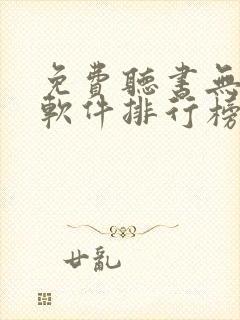 免費聽書無
軟件排行榜
廿亂